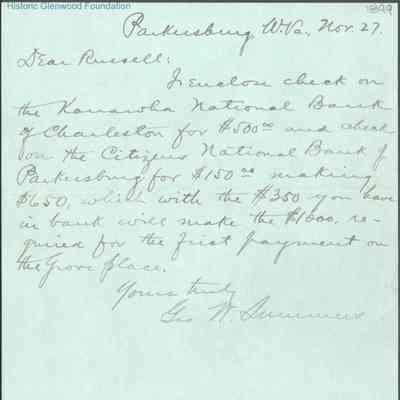 Historic Glenwood Foundation
1899
Parkersburg, W.Va., Nov. 27.
Dear Russell:
I enclose check on
the Kanawha National Bank
of Charleston for $500.00 and check
on the Citizens National Bank of
Parkersburg for $150.00 making
$650, which with the $350 you have
in bank will make the $1000. re-
quired for the first payment on
the Grove place.
Yours truly
Geo W. Summers